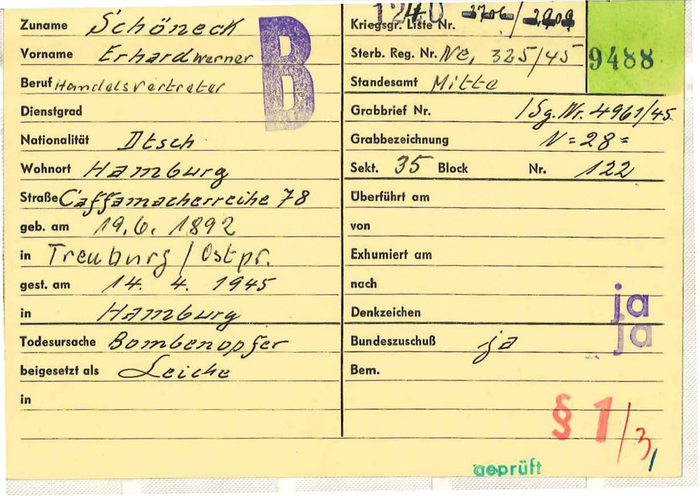 Zuname Schöneck
Vorname Erhard Werner
Beruf Handelsvertreter
Dienstgrad
Nationalität Dtsch
Wohnort Hamburg
Straße Caffamacherreihe 78
geb. am 19.6.1892
in Treuburg / Ostpr.
gest. am 14. 4. 1945
in Hamburg
Todesursache Bombenopfer
beigesetzt als Leiche
in
B
1240
Kriegsgr. Liste Nr. 2706 / 2909
Sterb. Reg. Nr. Ne, 325/45
9488
Standesamt Mitte
Grabbrief Nr. /Sg.Nr.4961/45
Grabbezeichnung N=28=
Sekt. 35 Block Nr. 122
Überführt am
von
Exhumiert am
nach
Denkzeichen ja
ja
Bundeszuschuß ja
Bem.
§ 1/3,
geprüft